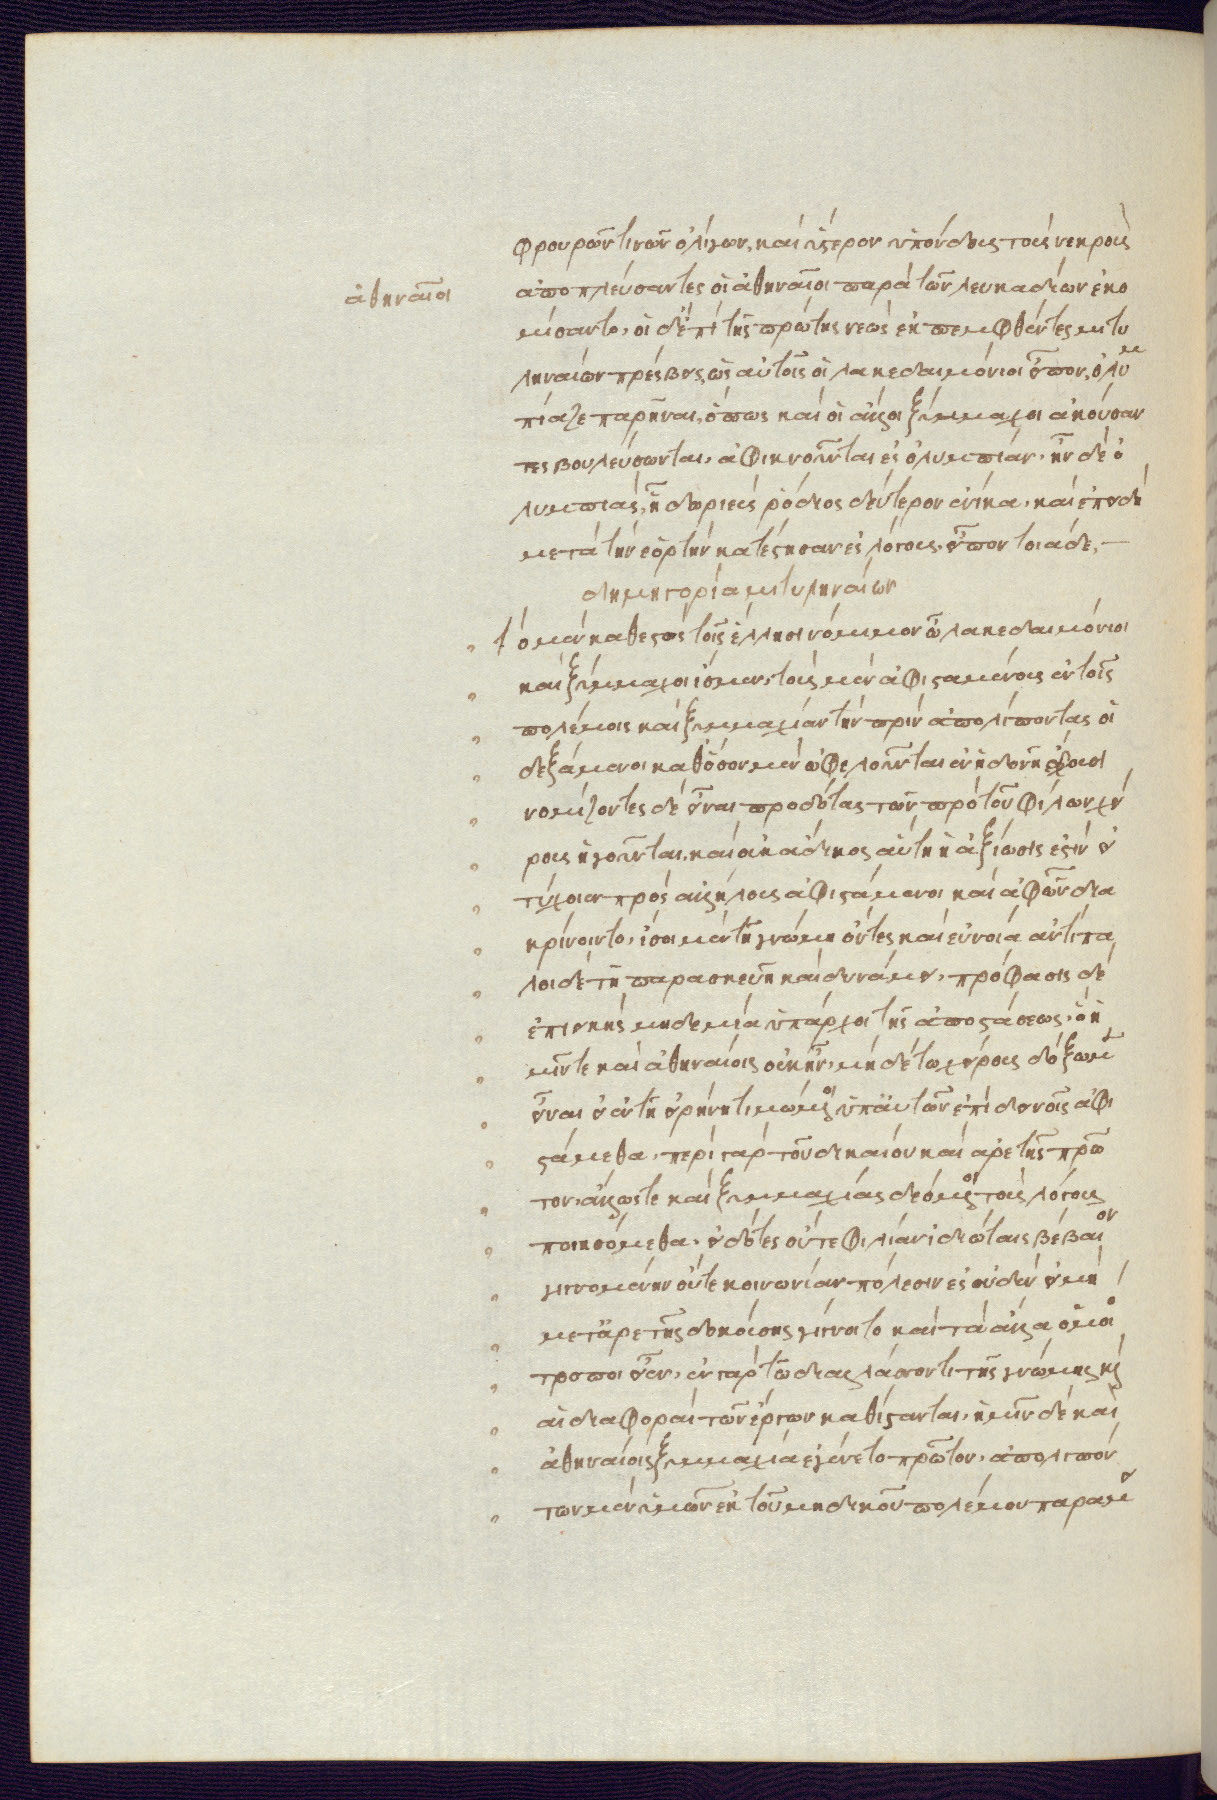 φρουρῶν τινῶν ὀλίγων, καὶ ὕστερον ὑποσπόνδους τοὺς νεκροὺς
ἀθηναῖοι
ἀποπλεύσαντες οἱ ἀθηναῖοι παρὰ τῶν λευκαδίων ἐκο
μίσαντο. οἱ δ' ἐπὶ τῆς πρώτης νεὼς ἐκπεμφθέντες μιτυ
ληναίων πρέσβεις, ὡς αὐτοῖς οἱ λακεδαιμόνιοι εἶπον, ὀλυμ
πίαζε παρεῖναι, ὅπως καὶ οἱ ἄλλοι ξύμμαχοι ἀκούσαν
τες βουλεύσωνται, ἀφικνοῦνται ἐς ὀλυμπίαν. ἦν δὲ ὀ
λυμπιὰς, ᾗ δωριεὺς ῥόδιος δεύτερον ἐνίκα. καὶ ἐπειδὴ
μετὰ τὴν ἑορτὴν κατέστησαν ἐς λόγους, εἶπον τοιάδε. –
δημηγορία μιτυληναίων
τὸ μὲν καθεστὸς τοῖς ἕλλησι νόμιμον ὦ λακεδαιμόνιοι
καὶ ξύμμαχοι ἴσμεν. τοὺς μὲν ἀφισταμένους ἐν τοῖς
πολέμοις καὶ ξυμμαχίαν τὴν πρὶν ἀπολιπόντας οἱ
δεξάμενοι καθόσον μὲν ὠφελοῦνται ἐν ἡδονῇ ἔχουσι
νομίζοντες δὲ εἶναι προδότας τῶν πρὸ τοῦ φίλων χεί
ρους ἡγοῦνται. καὶ οὐκ ἄδικος αὕτη ἡ ἀξίωσίς ἐστιν εἰ
τύχοιεν πρὸς ἀλλήλους ἀφιστάμενοι καὶ ἀφ' ὧν δια
κρίνοιντο, ἴσοι μὲν τῇ γνώμῃ ὄντες καὶ εὐνοίᾳ ἀντίπα
λοι δὲ τῇ παρασκευῇ καὶ δυνάμει. πρόφασις δὲ
ἐπιεικὴς μηδεμία ὑπάρχοι τῆς ἀποστάσεως. ὃ ἡ
μῖν τε καὶ ἀθηναίοις οὐκ ἦν. μηδέ τῳ χείρους δόξωμεν
εἶναι εἰ ἐν τῇ εἰρήνῃ τιμώμενοι ὑπ' αὐτῶν ἐπὶ δεινοῖς ἀφι
στάμεθα. περὶ γὰρ τοῦ δικαίου καὶ ἀρετῆς πρῶ
τον. ἄλλως τε καὶ ξυμμαχίας δεόμενοι τοὺς λόγους
ποιησόμεθα. εἰδότες οὔτε φιλίαν ἰδιώταις βέβαιον
γιγνομένην οὔτε κοινωνίαν πόλεσιν ἐς οὐδὲν εἰ μὴ
μετ' ἀρετῆς δοκούσης γίγνοιτο καὶ τὰ ἄλλα ὁμοιό
τροποι εἶεν. ἐν γὰρ τῷ διαλλάσσοντι τῆς γνώμης καὶ
αἱ διαφοραὶ τῶν ἔργων καθίστανται. ἡμῖν δὲ καὶ
ἀθηναίοις ξυμμαχία ἐγένετο πρῶτον. ἀπολιπόν
των μὲν ὑμῶν ἐκ τοῦ μηδικοῦ πολέμου παραμει